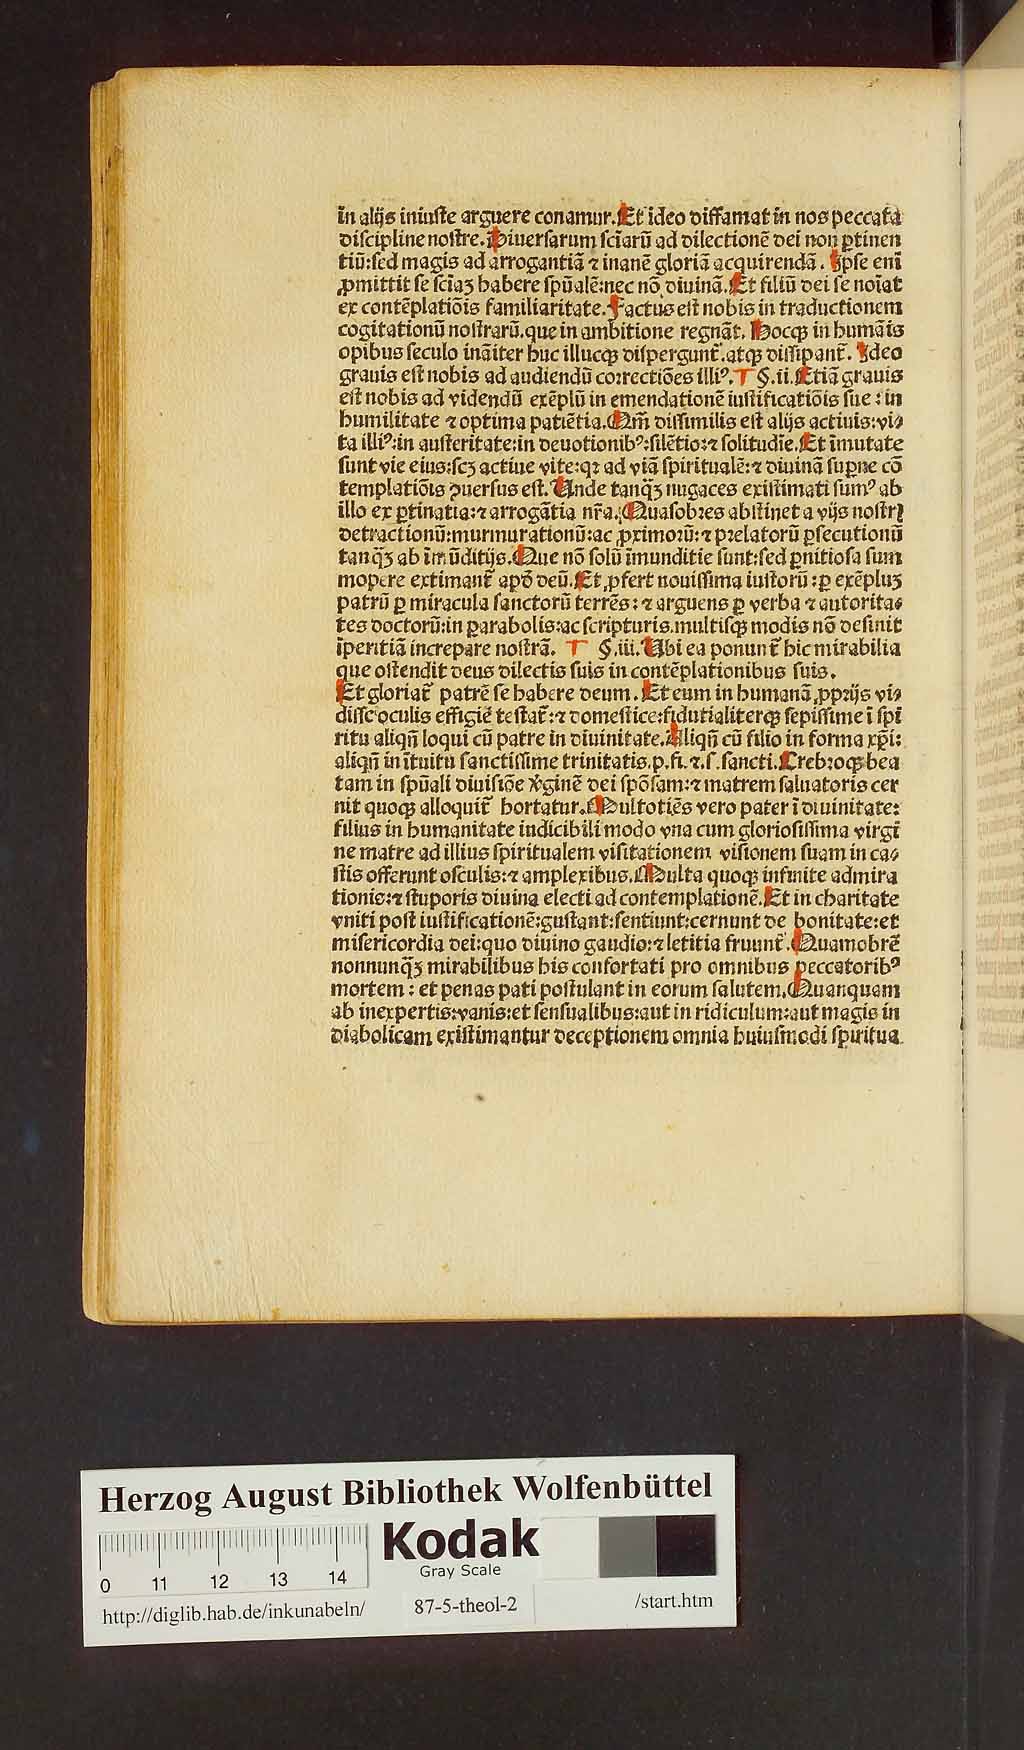 in alijs iniuste arguere conamur. Et ideo diffamat in nos peccata
discipline nostre. Diuersarum sciarū ad dilectionē dei non ꝑtinen
tiū: sed magis ad arrogantiā ⁊ inanē gloriā acquirendā. Ipse enī
ꝓmittit se sciaꝫ habere spūalē: nec nō diuinā. Et filiū dei se noīat
ex contēplatiōis familiaritate. Factus est nobis in traductionem
cogitationū nostrarū. que in ambitione regnāt. Hocqꝫ in humāis
opibus seculo ināiter huc illucqꝫ dispergunt᷑. atqꝫ dissipant᷑. Ideo
grauis est nobis ad audiendū correctiōes illiꝰ. T §. ii. Etiā grauis
est nobis ad videndū exēplū in emendationē iustificatiōis sue: in
humilitate ⁊ optima patiētia. Qm̄ dissimilis est alijs actiuis: vi-
ta illiꝰ: in austeritate: in deuotionibꝰ: silētio: ⁊ solitudīe. Et īmutate
sunt vie eius: scꝫ actiue vite: qꝛ ad viā spiritualē: ⁊ diuinā suꝑne cō
templatiōis ꝯuersus est. Unde tanqꝫ̄ nugaces existimati sumꝰ ab
illo ex ꝑtinatia: ⁊ arrogātia nr̄a. Quasobres abstinet a vijs nostrꝝ
detractionū: murmurationū: ac ꝓximorū: ⁊ prelatorū ꝑsecutionū
tanqꝫ̄ ab īmūditijs. Que nō solū īmunditie sunt: sed ꝑnitiosa sum
mopere extimant᷑ apd̄ deū. Et ꝓfert nouissima iustorū: ꝑ exēpluꝫ
patrū ꝑ miracula sanctorū terrēs: ⁊ arguens ꝑ verba ⁊ autorita-
tes doctorū: in ꝑarabolis: ac scripturis. multisqꝫ modis nō desinit
īperitiā increpare nostrā. T §. iii. Ubi ea ponunt᷑ hic mirabilia
que ostendit deus dilectis suis in contēplationibus suis.
Et gloriat᷑ patrē se habere deum. Et eum in humanā ꝓprijs vi-
disse oculis effigiē testat᷑: ⁊ domestice: fidutialiterqꝫ sepissime ī spī
ritu aliqn̄ loqui cū patre in diuinitate. Aliqn̄ cū filio in forma xp̄i:
aliqn̄ in ītuitu sanctissime trinitatis. p. fi. ⁊. s. sancti. Crebroqꝫ bea
tam in spūali diuisiōe v̄ginē dei spōsam: ⁊ matrem saluatoris cer
nit quoqꝫ alloquit᷑ hortatur. Multotiēs vero pater ī diuinitate:
filius in humanitate indicibili modo vna cum gloriosissima virgī
ne matre ad illius spiritualem visitationem visionem suam in ca-
stis offerunt osculis: ⁊ amplexibus. Multa quoqꝫ infinite admira
tionis: ⁊ stuporis diuina electi ad contemplationē. Et in charitate
vniti post iustificationē: gustant: sentiunt: cernunt de bonitate: et
misericordia dei: quo diuino gaudio: ⁊ letitia fruunt᷑. Quamobrē
nonnunqꝫ̄ mirabilibus his confortati pro omnibus peccatoribꝰ
mortem: et penas pati postulant in eorum salutem. Quanquam
ab inexpertis: vanis: et sensualibus: aut in ridiculum: aut magis in
diabolicam existimantur deceptionem omnia huiusmodi spiritua
Herzog August Bibliothek Wolfenbüttel
Kodak
Gray Scale
0 11 12 13 14
http://diglib.hab.de/inkunabeln/ 87-5-theol-2 /start.htm